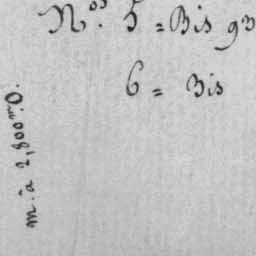 Nos. 5 = Bis 93
6 = Bis
m. à 2,800m.O.